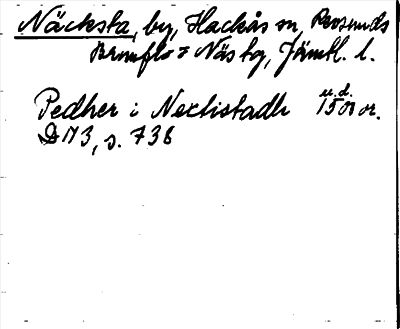 Näcksta, by, Hackås sn, Revsunds
Brunflo o Näs tg, Jämtl. l.
Pedher i Nectistadh u.d. 1500 or.
DN3, s. 738